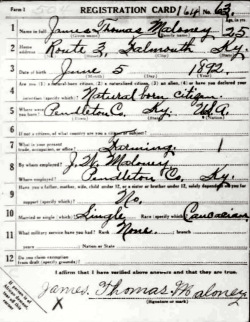 Form 1 REGISTRATION CARD 63
1 Name in full James Thomas Maloney Age, in yrs. 25
2 Home address Route 3, Falmouth Ky.
3 Date of birth June 5 1892
4 Are you (1) a natural-born citizen, (2) a naturalized citizen, (3) an alien, (4) or have you declared your intention (specify which)? Natural born citizen
5 Where were you born? Pendleton Co. Ky. U.S.A.
6 If not a citizen, of what country are you a citizen or subject?
7 What is your present trade, occupation, or office? Farming 1
8 By whom employed? J. W. Maloney
Where employed? Pendleton Co. Ky.
9 Have you a father, mother, wife, child under 12, or a sister or brother under 12, solely dependent on you for support (specify which)? No.
10 Married or single (which)? Single Race (specify which)? Caucasian
11 What military service have you had? Rank None.
years Nation or State
12 Do you claim exemption from draft (specify grounds)?
I affirm that I have verified above answers and that they are true.
James Thomas Maloney
X (Signature or mark)